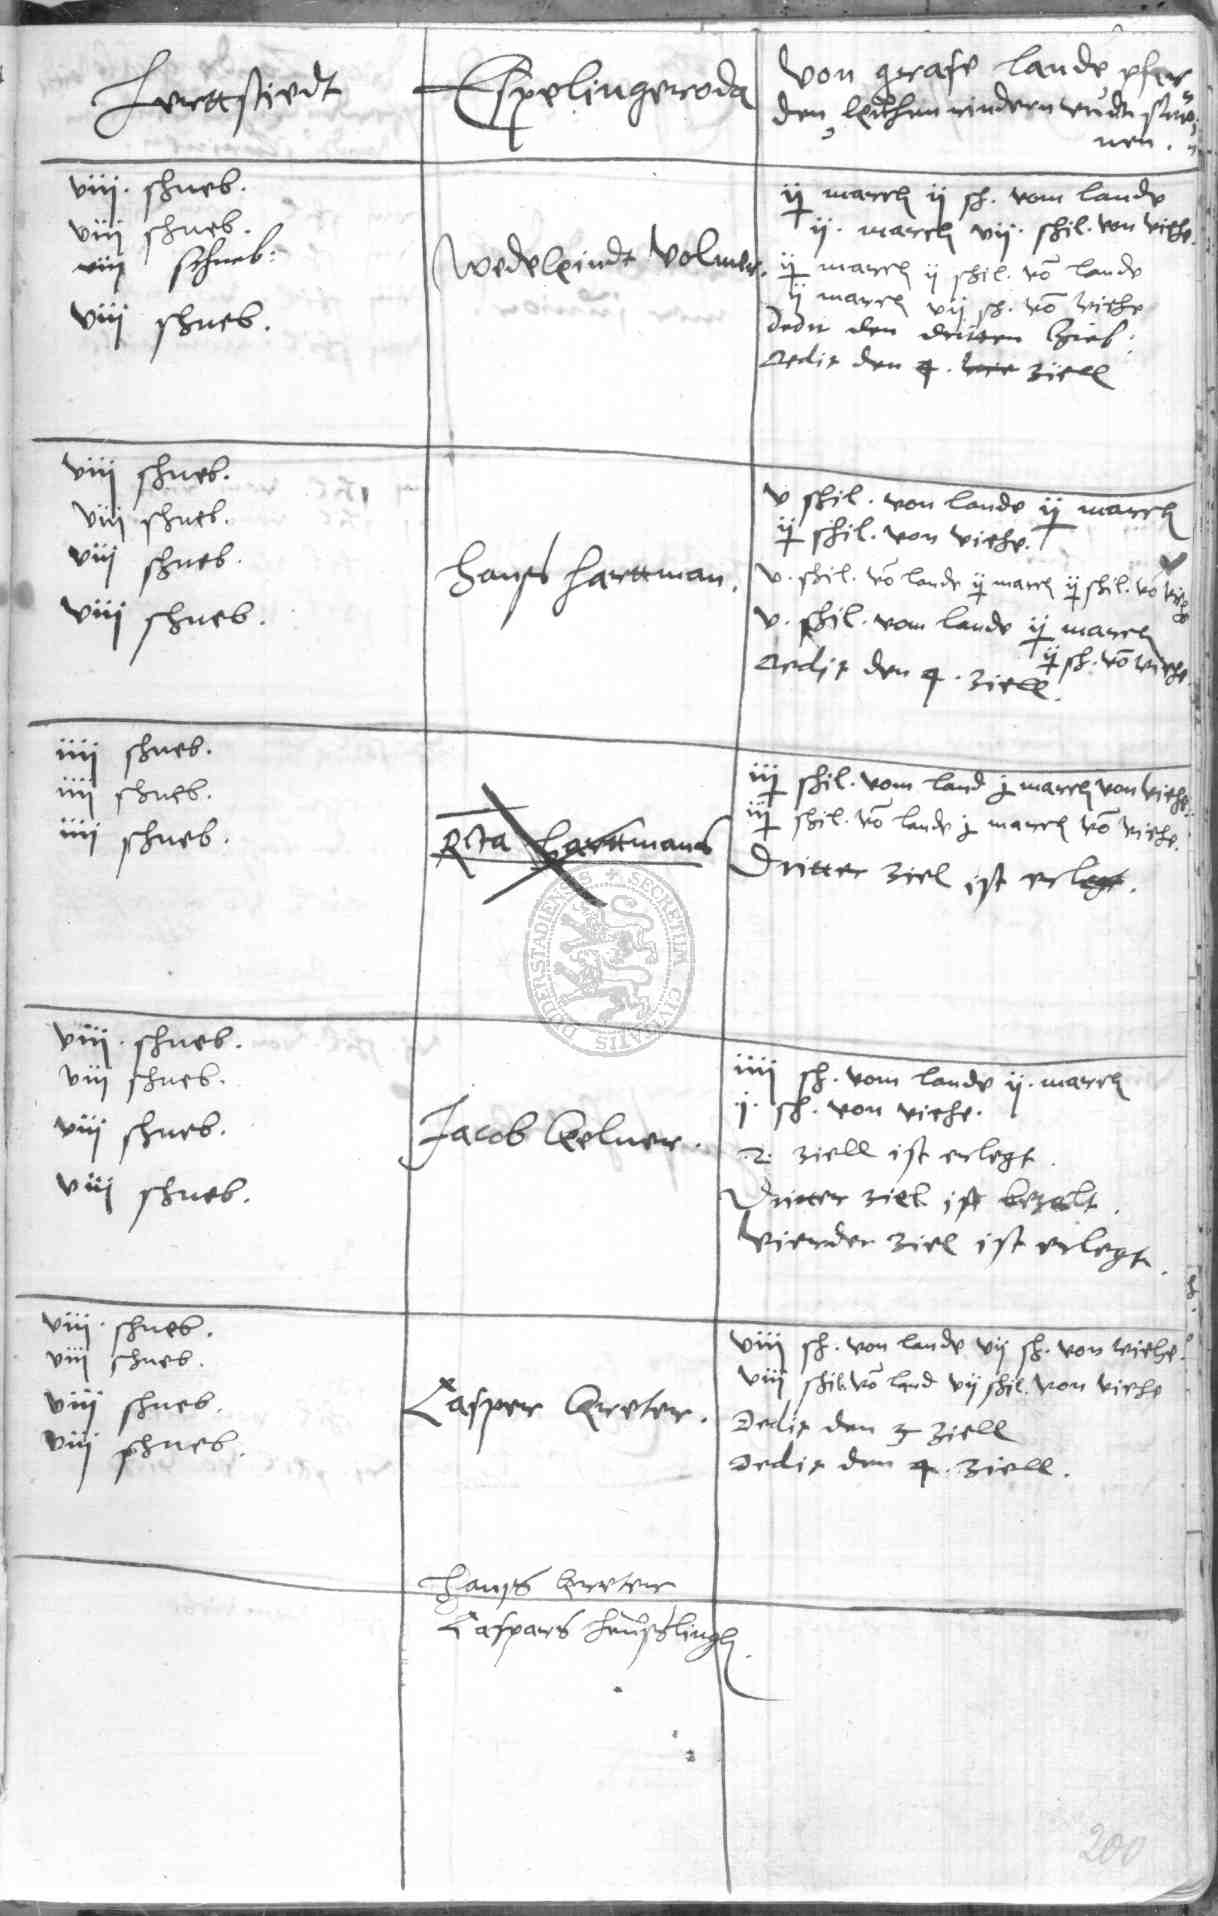 Herttstiedt
Espelingeroda
Von grase lande pfer
den kuhen rindern undt
nen.
viii. schneb.
viii schneb.
viii schneb.
viii schneb.
Wedekindt Volmer.
ij march ij sch. vom lande
ij. march vij. schil. von viehe.
ij march ij schil. võ lande
ij march vij sch. võ viehe
Dedit den dritten
Dedit den 4. ziell
viii schneb.
viii schneb.
viii schneb.
viii schneb.
Hanß Harttman.
v schil. von lande ij march
ij schil. von viehe.
v. schil. võ lande ij march ij schil. võ viehe
v. schil. vom lande ij march
ij sch. võ viehe.
Dedit den 4. ziell.
iiii schneb.
iiii schneb.
iiii schneb.
Harttmans
iij schil. vom land j march von viehe.
iij schil. võ lande j march võ viehe.
Dritter ziel ist erlegt.
viii. schneb.
viii schneb.
viii schneb.
viii schneb.
Jacob Kelner.
iiii sch. vom lande ij. march
j. sch. von viehe.
2. ziell ist erlegt.
Dritter ziel ist bezalt.
Vierder ziel ist erlegt.
viii. schneb.
viii schneb.
viii schneb.
viii schneb.
Casper Kreter.
viii sch. von lande vij sch. von viehe.
viii schil. võ land vij schil. von viehe
Dedit den 3 ziell
Dedit den 4. ziell.
Hanß Kreter
Caspars heußlingk.
SECRETUM CIVITATIS DUDERSTADIENSIS
200